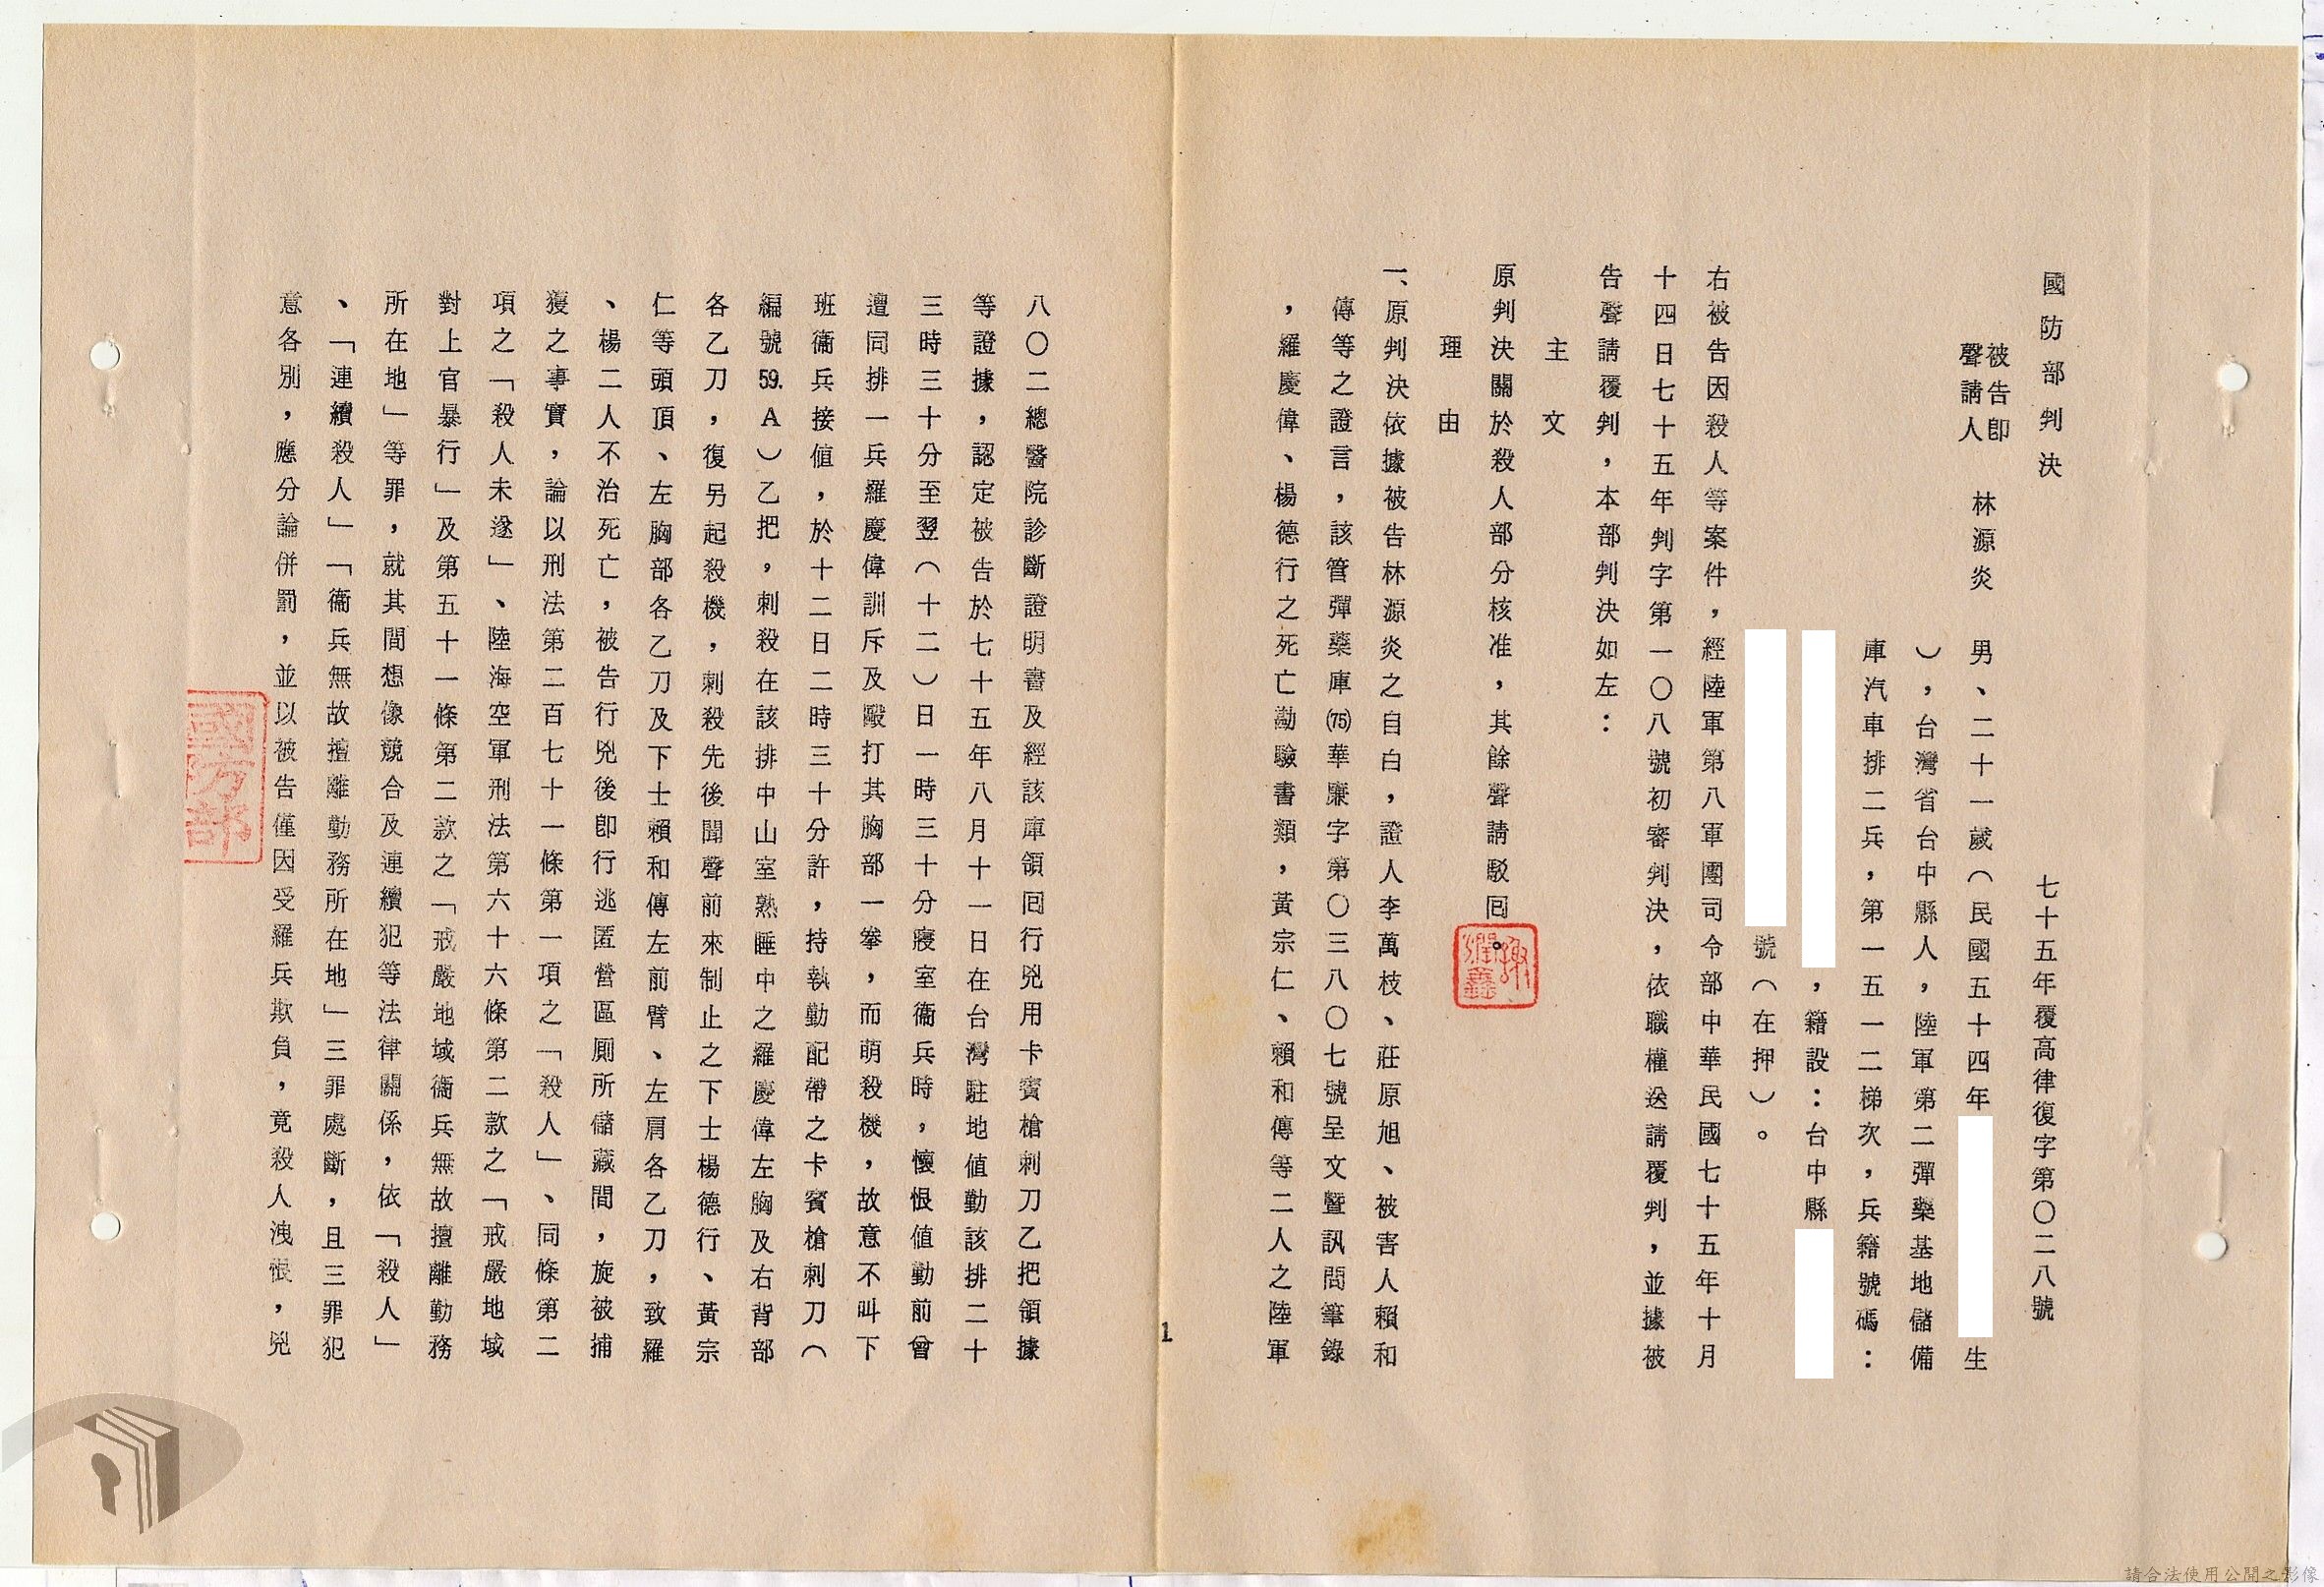 國防部判決
七十五年覆高律復字第〇二八號
被告即
聲請人
林源炎 男、二十一歲(民國五十四年 生
),台灣省台中縣人,陸軍第二彈藥基地儲備
庫汽車排二兵,第一五一二梯次,兵籍號碼:
,籍設:台中縣
號(在押)。
右被告因殺人等案件,經陸軍第八軍團司令部中華民國七十五年十月
十四日七十五年判字第一〇八號初審判決,依職權送請覆判,並據被
告聲請覆判,本部判決如左:
主文
原判決關於殺人部分核准,其餘聲請駁回。
理由
一、原判決依據被告林源炎之自白,證人李萬枝、莊原旭、被害人賴和
傳等之證言,該管彈藥庫(75)華廉字第〇三八〇七號呈文暨訊問筆錄
,羅慶偉、楊德行之死亡勘驗書類,黃宗仁、賴和傳等二人之陸軍
1
八〇二總醫院診斷證明書及經該庫領回行兇用卡賓槍刺刀乙把領據
等證據,認定被告於七十五年八月十一日在台灣駐地值勤該排二十
三時三十分至翌(十二)日一時三十分寢室衞兵時,懷恨值勤前曾
遭同排一兵羅慶偉訓斥及毆打其胸部一拳,而萌殺機,故意不叫下
班衞兵接值,於十二日二時三十分許,持執勤配帶之卡賓槍刺刀(
編號59.A)乙把,刺殺在該排中山室熟睡中之羅慶偉左胸及右背部
各乙刀,復另起殺機,刺殺先後聞聲前來制止之下士楊德行、黃宗
仁等頭頂、左胸部各乙刀及下士賴和傳左前臂、左肩各乙刀,致羅
、楊二人不治死亡,被告行兇後即行逃匿營區厠所儲藏間,旋被捕
獲之事實,論以刑法第二百七十一條第一項之「殺人」、同條第二
項之「殺人未遂」、陸海空軍刑法第六十六條第二款之「戒嚴地域
對上官暴行」及第五十一條第二款之「戒嚴地域衞兵無故擅離勤務
所在地」等罪,就其間想像競合及連續犯等法律關係,依「殺人」
、「連續殺人」「衞兵無故擅離勤務所在地」三罪處斷,且三罪犯
意各別,應分論併罰,並以被告僅因受羅兵欺負,竟殺人洩恨,兇
國防部
請合法使用公開之影像